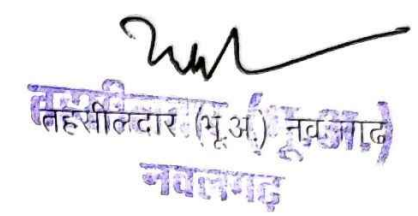 तहसीलदार (भू.अ.) नवलगढ
नवलगढ़